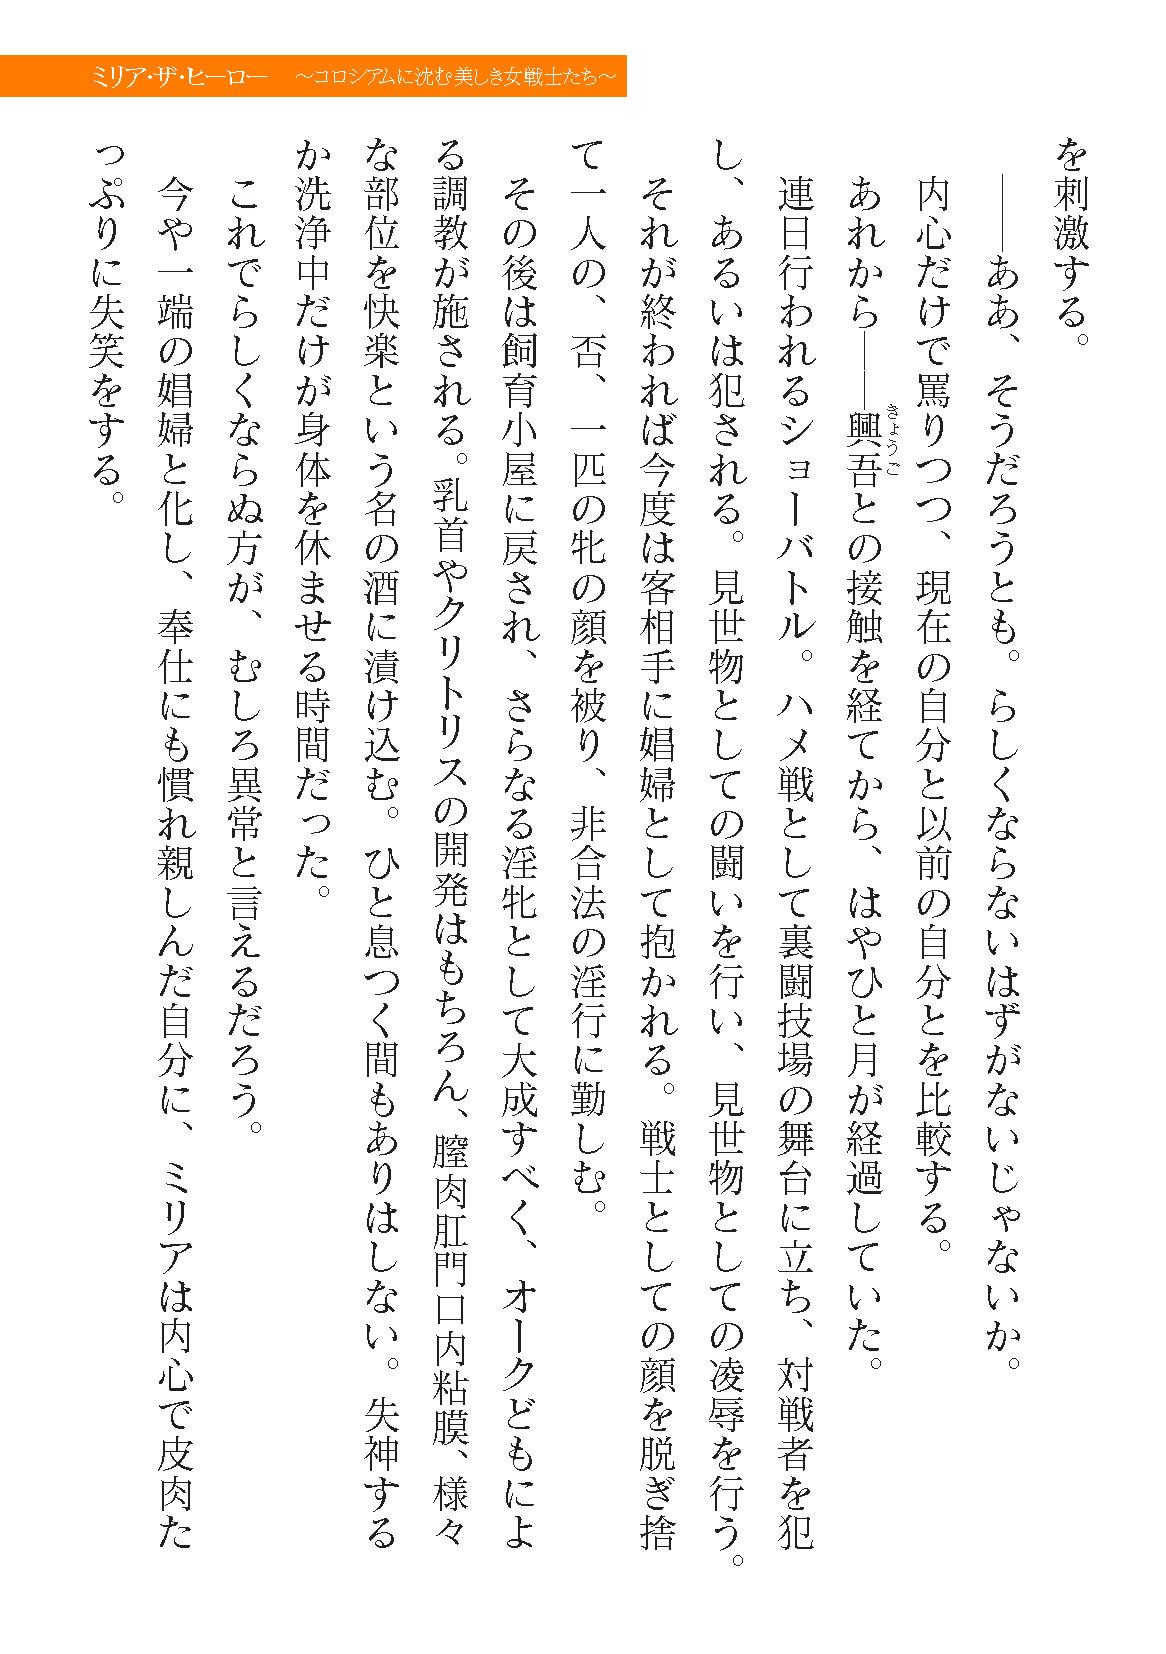 ミリア・ザ・ヒーロー　～コロシアムに沈む美しき女戦士たち～
を刺激する。
――ああ、そうだろうとも。らしくならないはずがないじゃないか。
内心だけで罵りつつ、現在の自分と以前の自分とを比較する。
あれから――興吾との接触を経てから、はやひと月が経過していた。
きょうご
連日行われるショーバトル。ハメ戦として裏闘技場の舞台に立ち、対戦者を犯
し、あるいは犯される。見世物としての闘いを行い、見世物としての凌辱を行う。
それが終われば今度は客相手に娼婦として抱かれる。戦士としての顔を脱ぎ捨
て一人の、否、一匹の牝の顔を被り、非合法の淫行に勤しむ。
その後は飼育小屋に戻され、さらなる淫牝として大成すべく、オークどもによ
る調教が施される。乳首やクリトリスの開発はもちろん、膣肉肛門口内粘膜、様々
な部位を快楽という名の酒に漬け込む。ひと息つく間もありはしない。失神する
か洗浄中だけが身体を休ませる時間だった。
これでらしくならぬ方が、むしろ異常と言えるだろう。
今や一端の娼婦と化し、奉仕にも慣れ親しんだ自分に、ミリアは内心で皮肉た
っぷりに失笑をする。